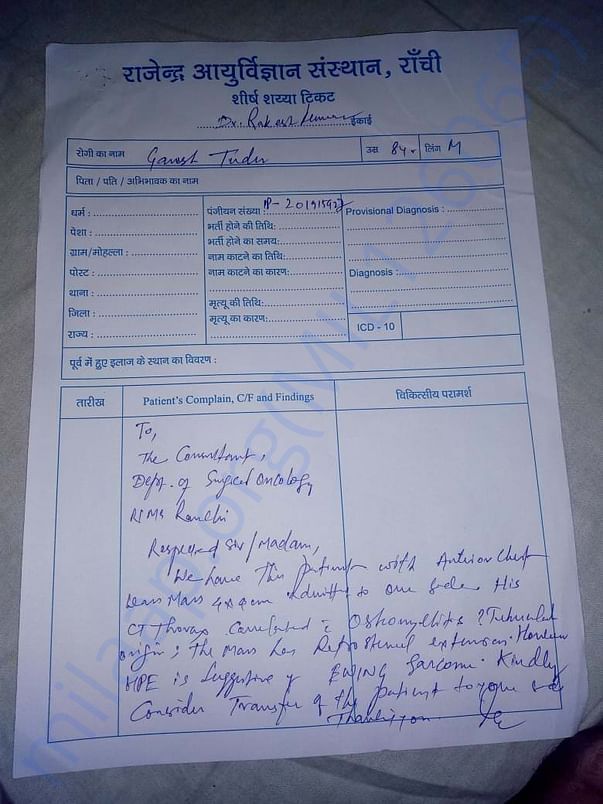 राजेन्द्र आयुर्विज्ञान संस्थान, राँची
शीर्ष शय्या टिकट
Dr. Rakesh Kumar इकाई
रोगी का नाम Ganesh Tudu उम्र 8y. लिंग M
पिता / पति / अभिभावक का नाम
धर्म : पंजीयन संख्या : IP- 20191592 Provisional Diagnosis :
पेशा : भर्ती होने की तिथि:
ग्राम/मोहल्ला : भर्ती होने का समय:
पोस्ट : नाम काटने का तिथि:
थाना : नाम काटने का कारण: Diagnosis :
जिला : मृत्यू की तिथि:
राज्य : मृत्यू का कारण: ICD - 10
पूर्व में हुए इलाज के स्थान का विवरण :
तारीख Patient's Complain, C/F and Findings चिकित्सीय परामर्श
To,
The Consultant,
Dept. of Surgical Oncology
RIMS Ranchi
Respected Sir / Madam,
We have this patient with Anterior Chest
Mass 4x4cm admitted to our side. His
CT Thorax Osteomyelitis ?
origin; the Mass has Retrosternal extension. However
HPE is suggestive of EWING Sarcoma. Kindly
Consider Transfer of the patient to your side
Thanking you.
milaap.org(MIL126965)